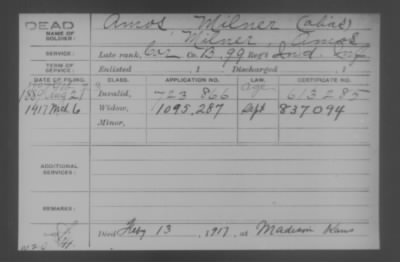 DEAD
NAME OF SOLDIER:
Amos, Milner (alias)
Milner, Amos
SERVICE:
Late rank, Cor Co. B, 99 Reg't Ind.
TERM OF SERVICE:
Enlisted , 1 Discharged , 1
DATE OF FILING. CLASS. APPLICATION NO. LAW. CERTIFICATE NO.
Aug 21 Invalid, 723 866 age 613285
1917 Mch 6 Widow, 1095,287 Sept 837094
Minor,
ADDITIONAL SERVICES:
REMARKS:
Died Feby 13 , 1917, at Madison Kans